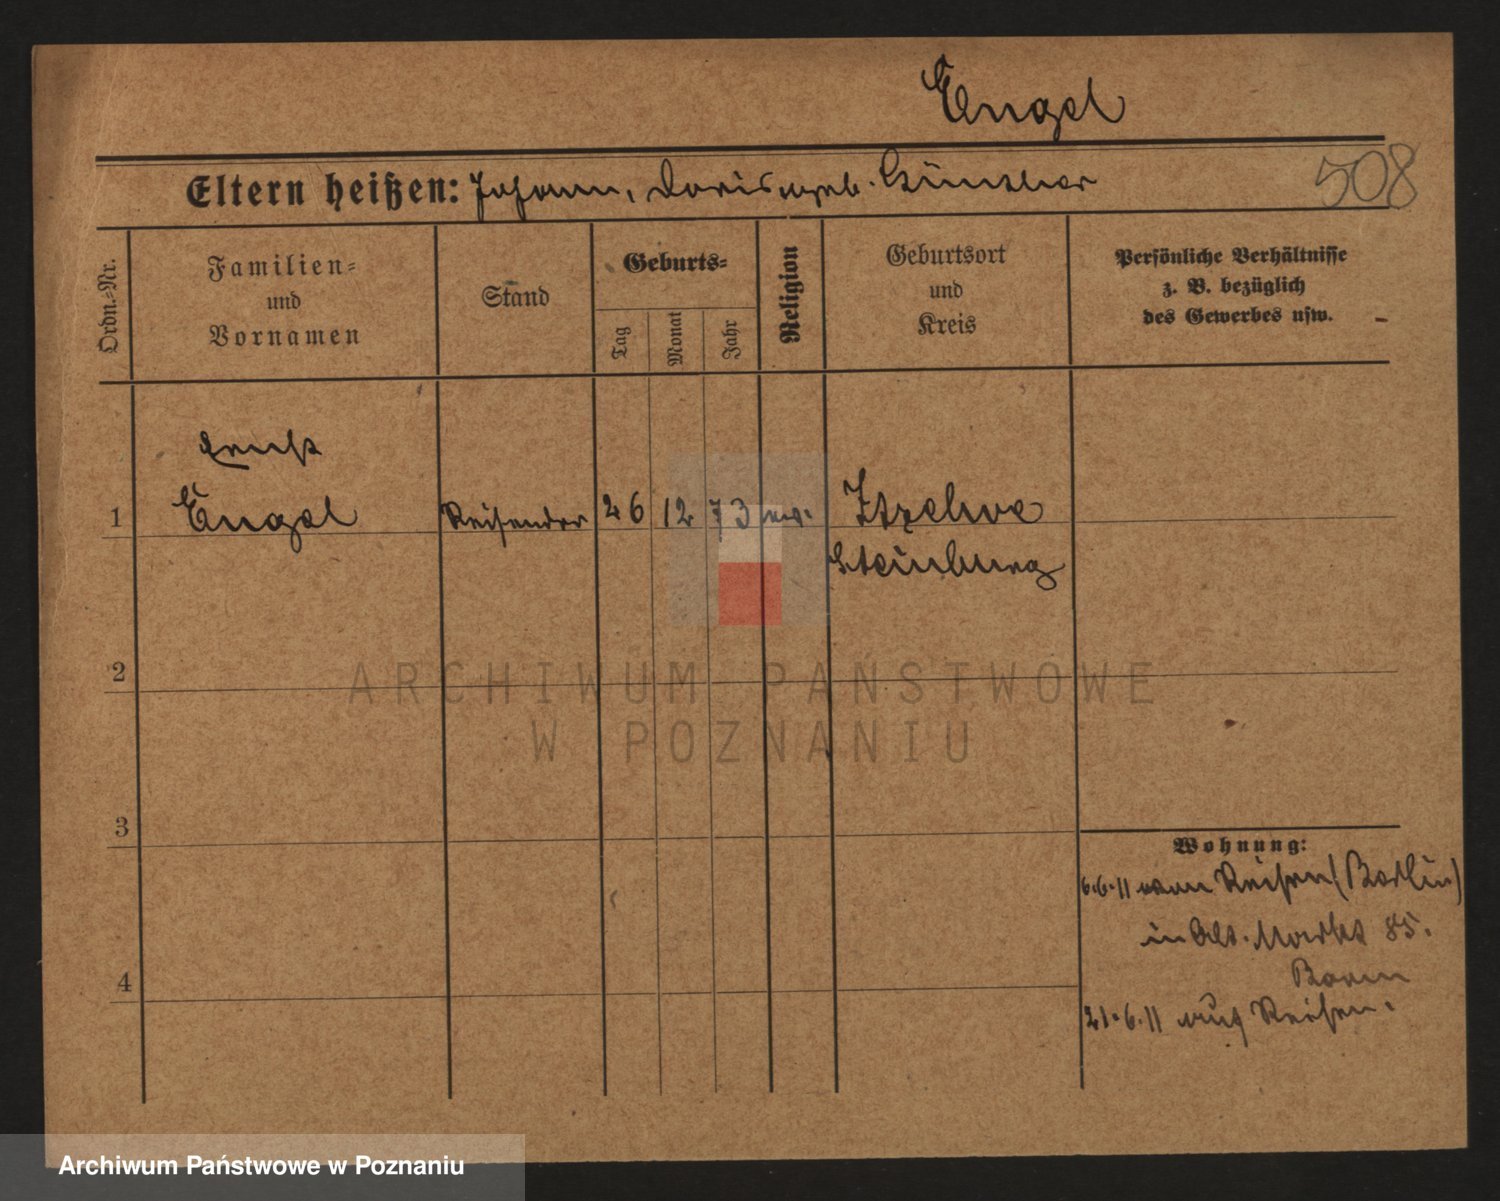 Engel
508
Eltern heißen: Johann, Doris geb. Günther
Ordn.=Nr.
Familien=
und
Vornamen
Stand
Geburts=
Tag
Monat
Jahr
Religion
Geburtsort
und
Kreis
Persönliche Verhältnisse
z. B. bezüglich
des Gewerbes usw.
Ernst
1 Engel Reisender 26 12 73 ev. Itzehoe
Steinburg
2
3
4
Wohnung:
6.6.11 von Reisen (Berlin)
in Alt. Markt 85.
21.6.11 auf Reisen.
ARCHIWUM PAŃSTWOWE
W POZNANIU
Archiwum Państwowe w Poznaniu